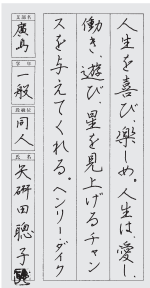 人生を喜び、楽しめ。人生は、愛し、
働き、遊び、星を見上げるチャン
スを与えてくれる。ヘンリー・ダイク
支部名
廣島
学年
一般
段級位
同人
氏名
矢研田聰子